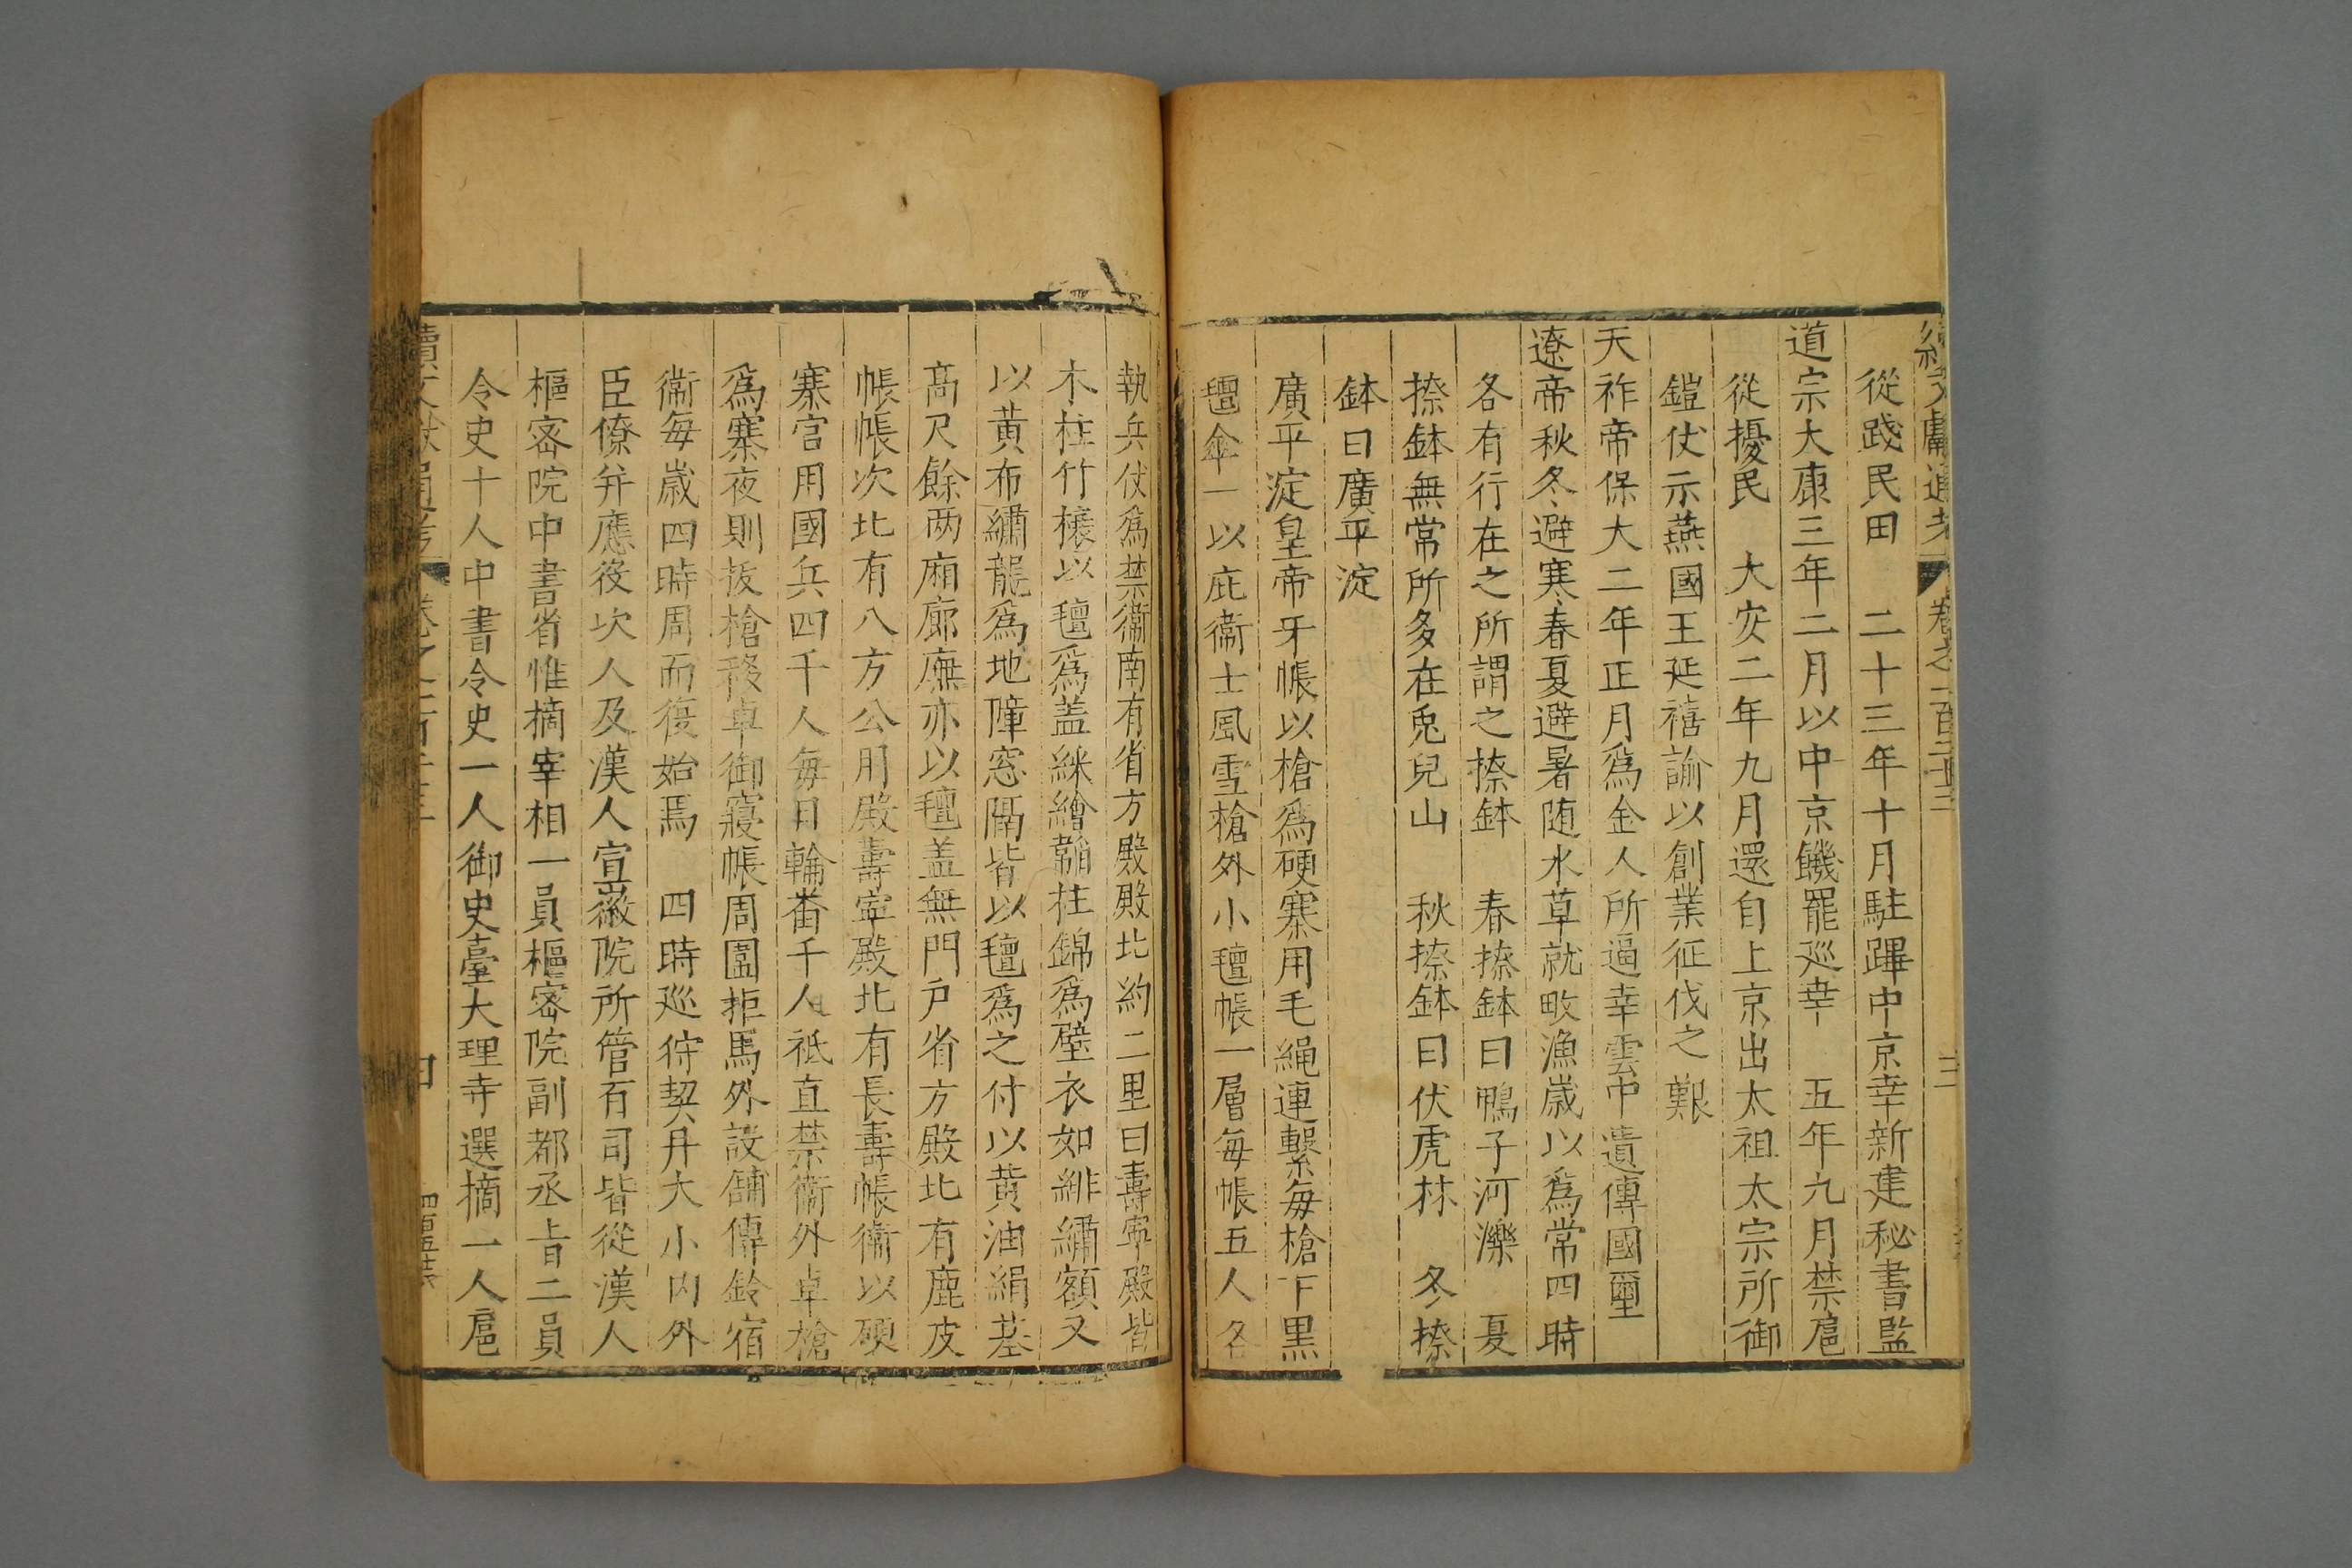 續文獻通考 卷之二百二十三 三
從踐民田 二十三年十月駐蹕中京幸新建秘書監
道宗大康三年二月以中京饑罷巡幸 五年九月禁扈
從擾民 大安二年九月還自上京出太祖太宗所御
鎧仗示燕國王延禧諭以創業征伐之艱
天祚帝保大二年正月爲金人所逼幸雲中遺傳國璽
遼帝秋冬避寒春夏避暑随水草就畋漁歲以爲常四時
各有行在之所謂之捺鉢 春捺鉢曰鴨子河濼 夏
捺鉢無常所多在兎兒山 秋捺鉢曰伏虎林 冬捺
鉢曰廣平淀
廣平淀皇帝牙帳以槍爲硬寨用毛繩連繫每槍下黑
氊傘一以庇衞士風雪槍外小氊帳一層每帳五人各
執兵仗爲禁衞南有省方殿殿北約二里曰壽寧殿皆
木柱竹榱以氊爲盖綵繪韜柱錦爲壁衣加緋繡額又
以黄布繡龍爲地障窓隔皆以氊爲之付以黄油絹基
高尺餘两廂廊廡亦以氊盖無門戶省方殿北有鹿皮
帳帳次北有八方公用殿壽寧殿北有長壽帳衞以硬
寨官用國兵四千人每日輪番千人祗直禁衞外卓槍
爲寨夜則拔槍移卓御寢帳周圍拒馬外設舖傳鈴宿
衞每歲四時周而復始焉 四時巡狩契丹大小内外
臣僚并應役次人及漢人宣徽院所管百司皆從漢人
樞密院中書省惟摘宰相一員樞密院副都丞㫖二員
令史十人中書令史一人御史臺大理寺選摘一人扈
續文獻通考 卷之二百二十三 四 四百五十六